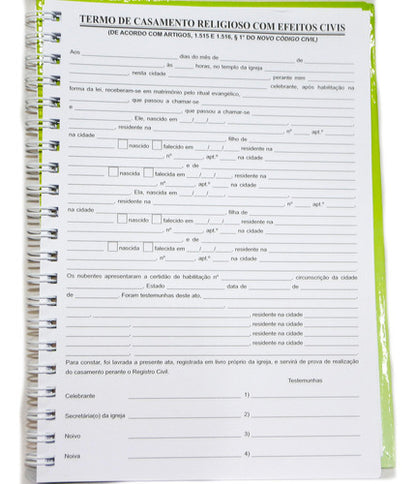 TERMO DE CASAMENTO RELIGIOSO COM EFEITOS CIVIS
(DE ACORDO COM ARTIGOS, 1.515 E 1.516, § 1º DO NOVO CÓDIGO CIVIL)
Aos ______ dias do mês de ______ de ______
______, às ______ horas, no templo da igreja ______
______, nesta cidade ______, perante mim ______
______ celebrante, após habilitação na
forma da lei, receberam-se em matrimônio pelo ritual evangélico, ______
______, que passou a chamar-se ______
e ______, que passou a chamar-se ______
______. Ele, nascido em ___/___/___, ______
______, residente na ______, nº ______ apt.º ______
na cidade ______, filho de ______
nascido falecido em ___/___/___, residente na ______
______, nº ______, apt.º ______ na cidade ______
______, e de ______
nascida falecida em ___/___/___, residente na ______
______, nº ______, apt.º ______ na cidade ______
______. Ela, nascida em ___/___/___, ______
______, residente na ______, nº ______ apt.º ______
na cidade ______, filha de ______
nascido falecido em ___/___/___, residente na ______
______, nº ______, apt.º ______ na cidade ______
______, e de ______
nascida falecida em ___/___/___, residente na ______
______, nº ______, apt.º ______ na cidade ______
Os nubentes apresentaram a certidão de habilitação nº ______, circunscrição da cidade
______, Estado ______ data de ______ de ______
de ______. Foram testemunhas deste ato, ______
______, residente na cidade ______
______, residente na cidade ______
______, residente na cidade ______
______, residente na cidade ______
Para constar, foi lavrada a presente ata, registrada em livro próprio da igreja, e servirá de prova de realização
do casamento perante o Registro Civil.
Testemunhas
Celebrante ______ 1) ______
Secretária(o) da igreja ______ 2) ______
Noivo ______ 3) ______
Noiva ______ 4) ______